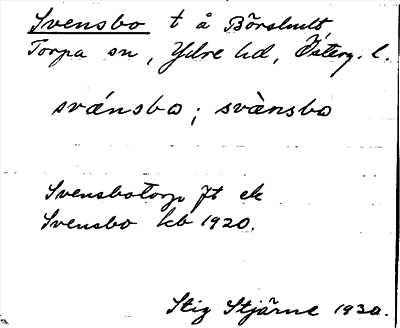 Svensbo t å Börshult
Torpa sn, Ydre hd, Österg. l.
svánsbo; svànsbo
Svensbotorp ft ek
Svensbo kb 1920.
Stig Stjärne 1930.